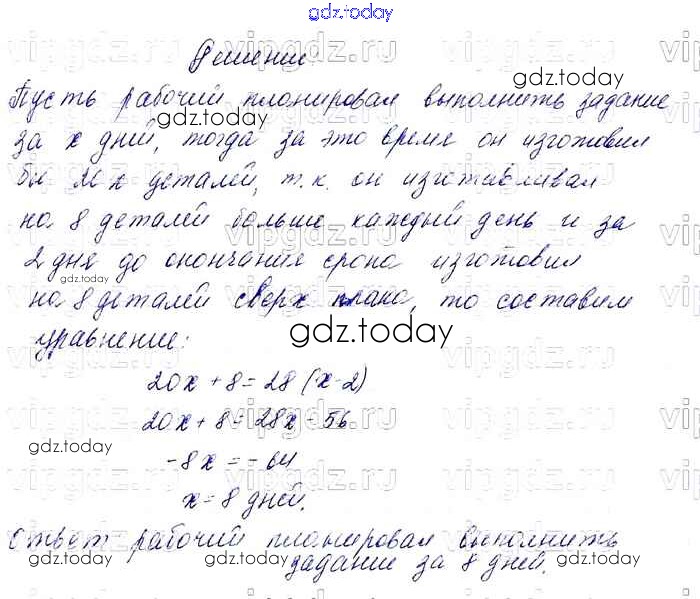 gdz.today
Решение
gdz.today
Пусть рабочий планировал выполнить задание
gdz.today
за x дней, тогда за это время он изготовил
бы 20x деталей, т.к. он изготавливал
на 8 деталей больше каждый день и за
2 дня до окончания срока изготовил
на 8 деталей сверх плана, то составим
уравнение:
gdz.today
20x + 8 = 28 (x - 2)
20x + 8 = 28x - 56
gdz.today
-8x = -64
x = 8 дней.
gdz.today
Ответ рабочий планировал выполнить
задание за 8 дней.
gdz.today
gdz.today
vipgdz.ru